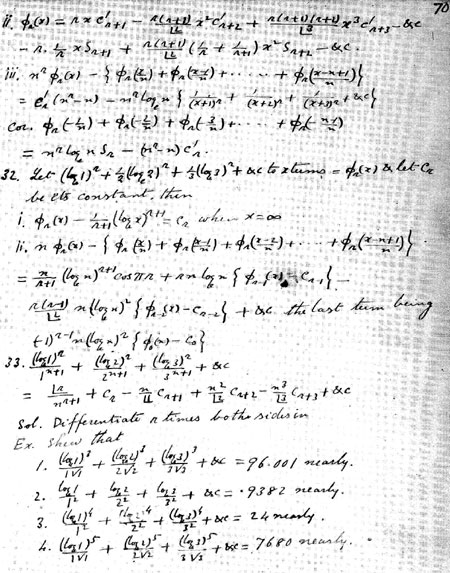 70
ii. φ_r(x) = r x c'_{r+1} − r(r+1)/⌊2 x² c'_{r+2} + r(r+1)(r+2)/⌊3 x³ c'_{r+3} − &c
− r. 1/r x S_{r+1} + r(r+1)/⌊2 (1/r + 1/(r+1)) x² S_{r+2} − &c.
iii. n^r φ_r(x) − {φ_r(x/n) + φ_r((x−1)/n) + ..... + φ_r((x−n+1)/n)}
= c'_r (n^r − n) − n^r log_e n {1/(x+1)^r + 1/(x+2)^r + 1/(x+3)^r + &c}
Cor. φ_r(−1/n) + φ_r(−2/n) + φ_r(−3/n) + .... + φ_r(−(n−1)/n)
= n^r log n S_r − (n^r − n) c'_r.
32. Let (log 1)^r + 1/2 (log 2)^r + 1/3 (log 3)^r + &c to x terms = φ_r(x) & let C_r
be its constant, then
i. φ_r(x) − 1/(r+1) (log x)^{r+1} = C_r when x = ∞
ii. n φ_r(x) − {φ_r(x/n) + φ_r((x−1)/n) + φ_r((x−2)/n) + .... + φ_r((x−n+1)/n)}
= n/(r+1) (log n)^{r+1} cos πr + r n log n {φ_{r−1}(x) − C_{r−1}} −
r(r−1)/⌊2 n (log n)² {φ_{r−2}(x) − C_{r−2}} + &c the last term being
(−1)^{r−1} n (log n)^r {φ_0(x) − C_0}
33. (log 1)^r/1^{n+1} + (log 2)^r/2^{n+1} + (log 3)^r/3^{n+1} + &c
= ⌊r/n^{r+1} + C_r − n/⌊1 C_{r+1} + n²/⌊2 C_{r+2} − n³/⌊3 C_{r+3} + &c
Sol. Differentiate r times both sides in
Ex. Shew that
1. (log 1)³/1√1 + (log 2)³/2√2 + (log 3)³/3√3 + &c = 96.001 nearly.
2. log 1/1² + log 2/2² + log 3/3² + &c = .9382 nearly.
3. (log 1)⁴/1² + (log 2)⁴/2² + (log 3)⁴/3² + &c = 24 nearly.
4. (log 1)⁵/1√1 + (log 2)⁵/2√2 + (log 3)⁵/3√3 + &c = 7680 nearly.